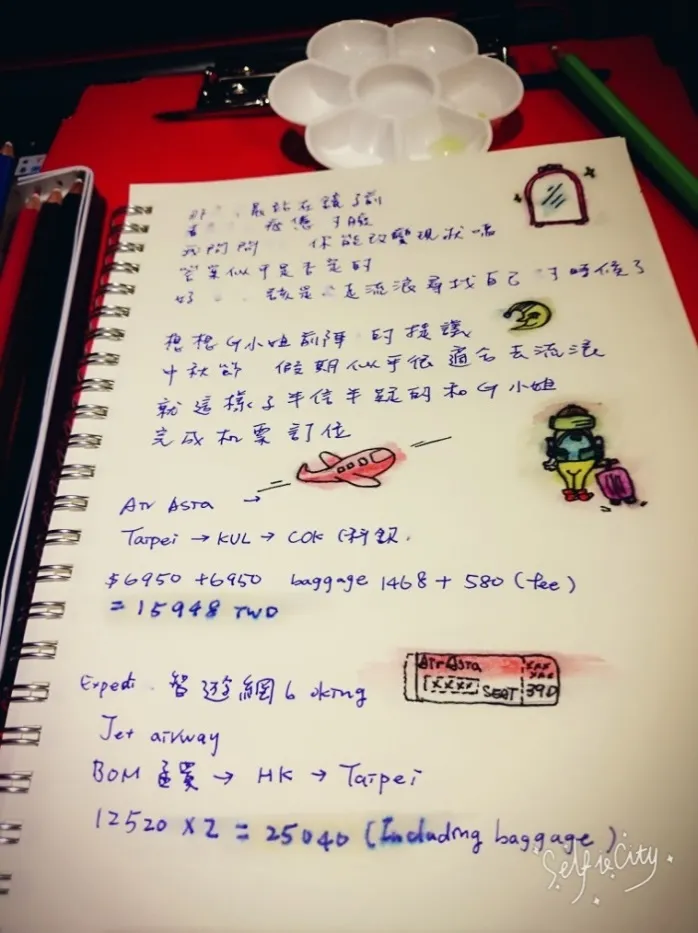 最站在鏡子前
我問問 你能改變現狀嗎
答案似乎是否定的
該是 走流浪尋找自己 時候了
想想G小姐前陣 的提議
中秋節 假期似乎很適合去流浪
就這樣子半信半疑的和G小姐
完成机票訂位
Air Asia →
Taipei → KUL → COK (科欽.
$6950 + 6950 baggage 1468 + 580 (fee)
= 15948 TWD
Air Asia xxx
xxx
xxxx SEAT 39D
Expedi. 智遊網 b oking
Jet airway
BOM 孟買 → HK → Taipei
12520 x 2 = 25040 (Including baggage)
SelfieCity